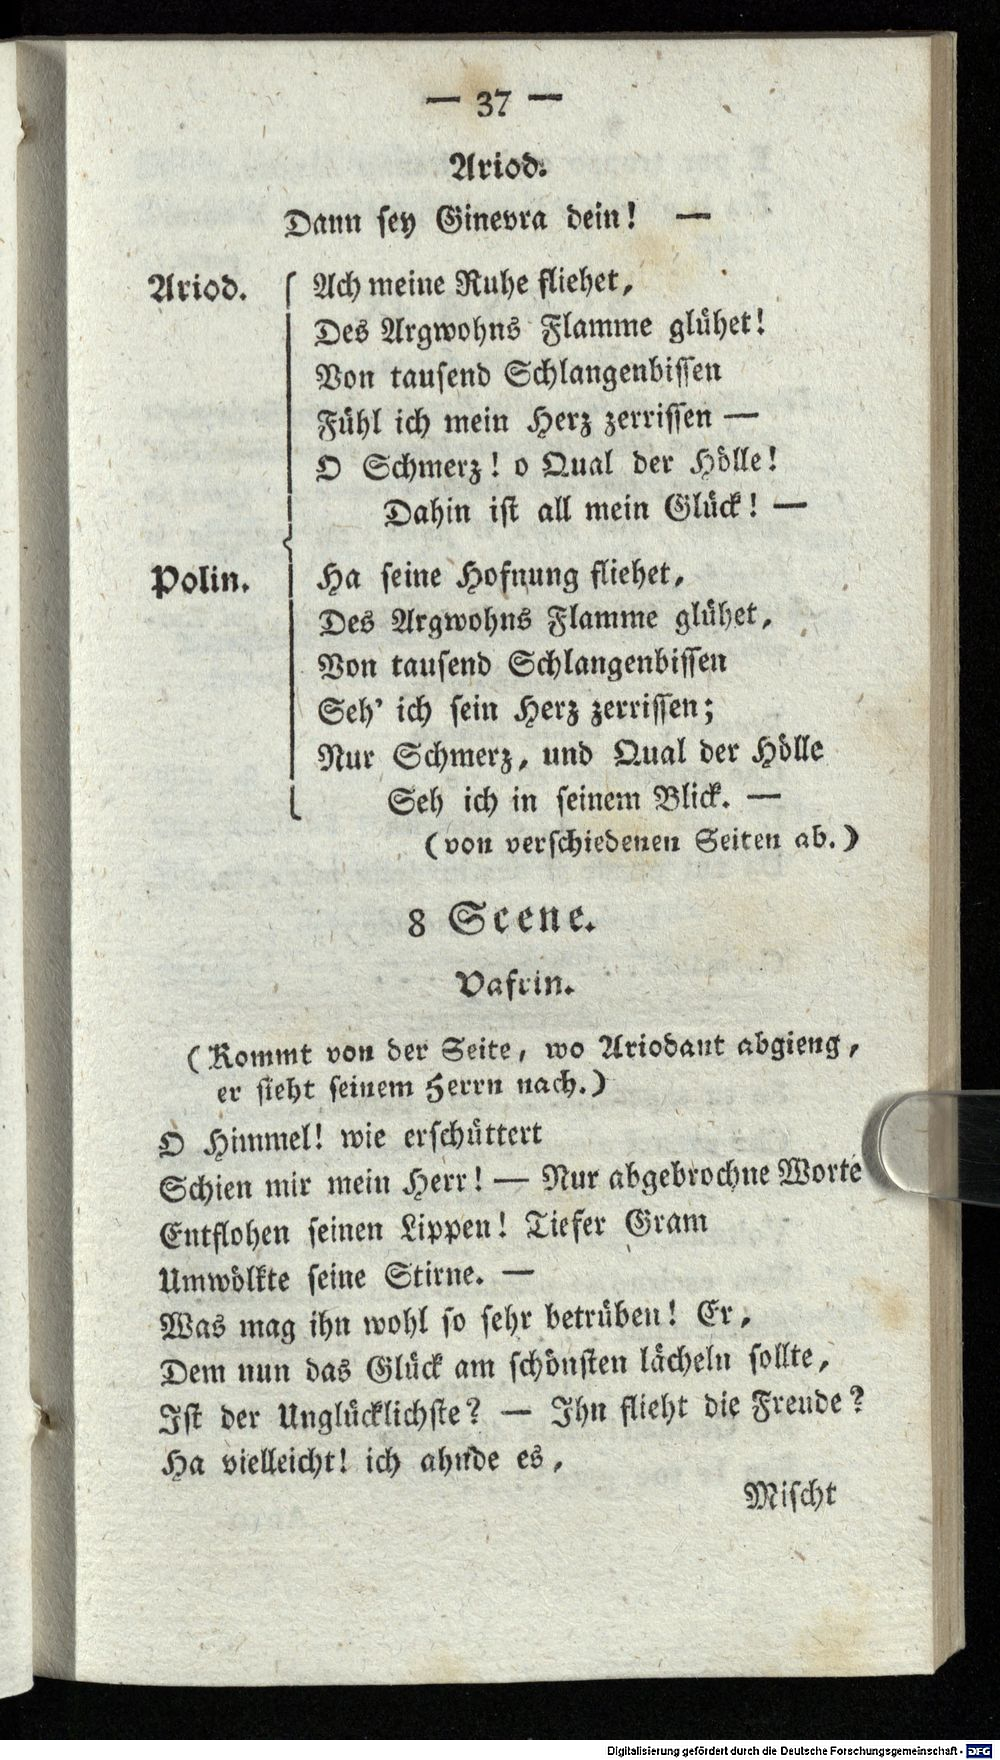 — 37 —
Ariod.
Dann sey Ginevra dein! —
Ariod. Ach meine Ruhe fliehet,
Des Argwohns Flamme glühet!
Von tausend Schlangenbissen
Fühl ich mein Herz zerrissen —
O Schmerz! o Qual der Hölle!
Dahin ist all mein Glück! —
Polin. Ha seine Hofnung fliehet,
Des Argwohns Flamme glühet,
Von tausend Schlangenbissen
Seh' ich sein Herz zerrissen;
Nur Schmerz, und Qual der Hölle
Seh ich in seinem Blick. —
(von verschiedenen Seiten ab.)
8 Scene.
Vafrin.
(Kommt von der Seite, wo Ariodant abgieng,
er sieht seinem Herrn nach.)
O Himmel! wie erschüttert
Schien mir mein Herr! — Nur abgebrochne Worte
Entflohen seinen Lippen! Tiefer Gram
Umwölkte seine Stirne. —
Was mag ihn wohl so sehr betrüben! Er,
Dem nun das Glück am schönsten lächeln sollte,
Ist der Unglücklichste? — Ihn flieht die Freude?
Ha vielleicht! ich ahnde es,
Mischt
Digitalisierung gefördert durch die Deutsche Forschungsgemeinschaft - DFG